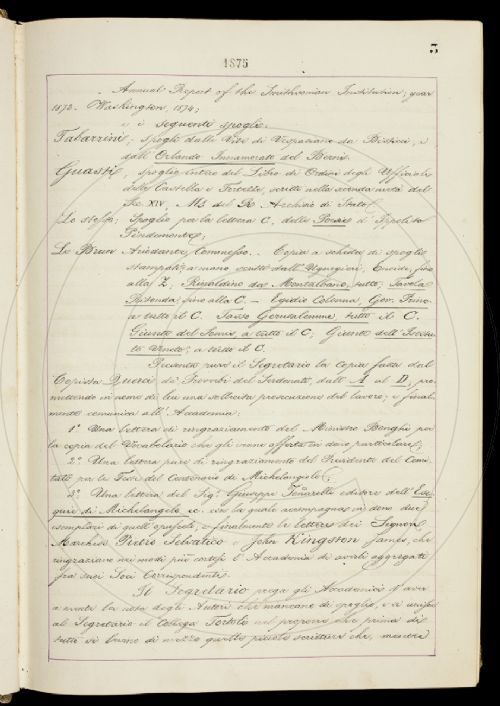 3
1875
Annual Report of the Smithsonian Institution, year
1873. Washington 1874;
e i seguenti spogli.
Tabarrini, spogli dalle Vite di Vespasiano da Bisticci, e
dall'Orlando Innamorato del Berni.
Guasti, spoglio intero del Libro di Ordini degli Uffiziali
delle Castella e Fortezze, scritto nella seconda metà del
Sec. XIV, Ms. del R. Archivio di Stato;
Lo stesso; Spoglio per la lettera C, delle Poesie d'Ippolito
Pindemonte;
Le Brun Aiutante Commesso. Copia a schede di spogli
stampati a mano dall'Ugurgieri; Eneide, fino
alla Z; Rinaldino da Montalbano, tutto; Tavola
Ritonda, fino alla C. – Egidio Colonna, Gov. Princ.
a tutto il C. Tasso Gerusalemme, tutto il C.
Giunte del a tutto il C; Giunte dell'
Veneto; a tutto il C.
Presenta pure il Segretario la copia fatta dal
Copista Querci di Proverbi del Serdonati, dall' A al D, pro-
mettendo in nome di lui una sollecita prosecuzione del lavoro; e final-
mente comunica all'Accademia:
1.º Una lettera di ringraziamento del Ministro Bonghi per
la copia del Vocabolario che gli venne offerta in dono particolare;
2.º Una lettera pure di ringraziamento del Presidente del Comi-
tato per le Feste del Centenario di Michelangelo;
3.º Una lettera del Sig.r Giuseppe editore dell'Ese-
quie di Michelangelo ec. con la quale accompagna in dono due
esemplari di quell'opuscolo, e finalmente le lettere dei Signori
Marchese Pietro Selvatico e John Kingston James, che
ringraziano nei modi più cortesi l'Accademia di averli aggregati
fra' suoi Soci Corrispondenti.
Il Segretario prega gli Accademici d'aver
a mente la nota degli Autori che mancano di spoglio, e si unisce
al Segretario il Collega Tortoli nel proporre che prima di
tutti si buono di mezzo quelle piccole scritture che, mentre